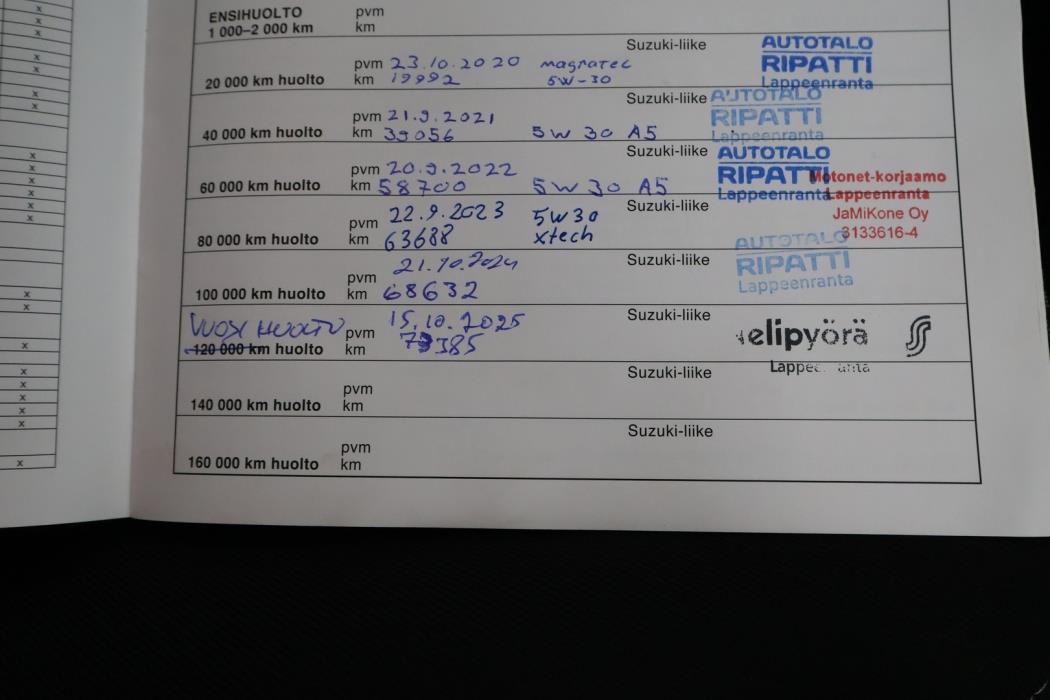 x
x
x
x
x
x
x
x
x
x
x
x
x
x
x
x
x
x
x
x
x
x
ENSIHUOLTO pvm
1 000–2 000 km km
Suzuki-liike AUTOTALO
pvm 23.10.2020 magnatec RIPATTI
20 000 km huolto km 19992 5W-30 Lappeenranta
Suzuki-liike AUTOTALO
pvm 21.9.2021 RIPATTI
40 000 km huolto km 39056 5W 30 A5 Lappeenranta
Suzuki-liike AUTOTALO
pvm 20.9.2022 RIPATTI Motonet-korjaamo
60 000 km huolto km 58700 5W 30 A5 Lappeenranta Lappeenranta
Suzuki-liike JaMiKone Oy
pvm 22.9.2023 5W30 3133616-4
80 000 km huolto km 63688 xtech AUTOTALO
Suzuki-liike RIPATTI
pvm 21.10.2024 Lappeenranta
100 000 km huolto km 68632
Suzuki-liike
VUOSI HUOLTO pvm 15.10.2025 elipyörä
120 000 km huolto km 73385
Suzuki-liike Lappee
pvm
140 000 km huolto km
Suzuki-liike
pvm
160 000 km huolto km